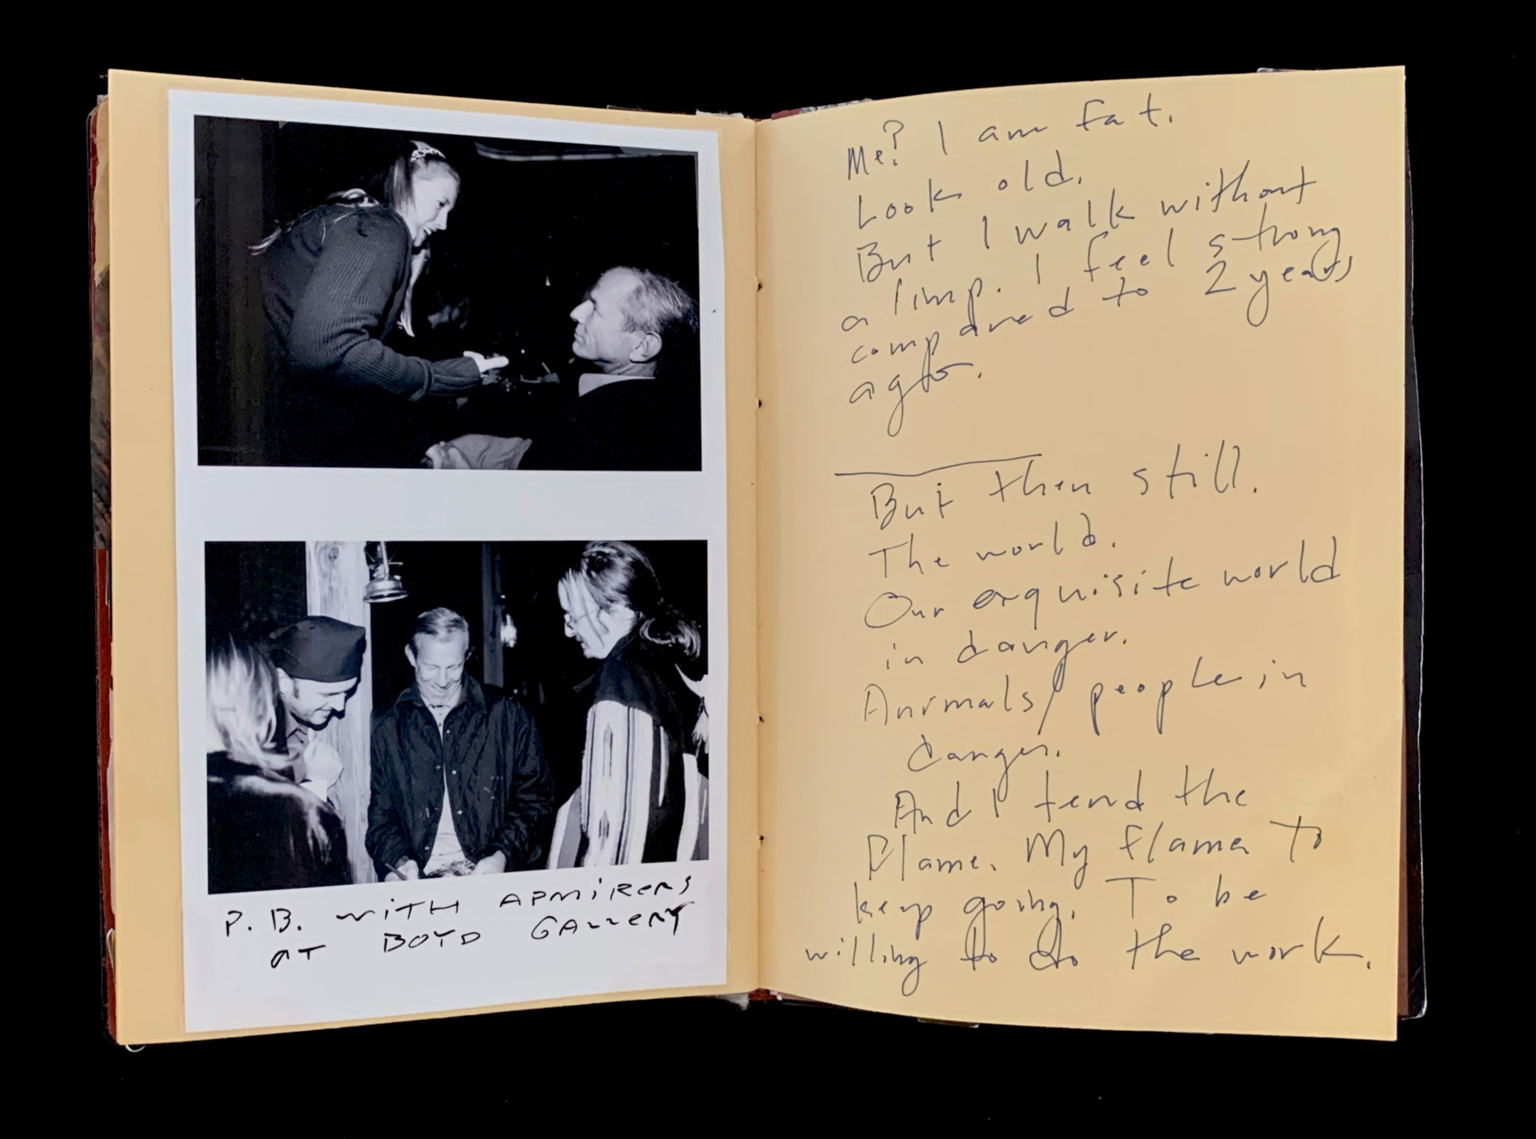 P. B. WITH ADMIRERS
AT BOYD GALLERY
Me? I am fat.
Look old.
But I walk without
a limp. I feel strong
compared to 2 years
ago.
But then still.
The world.
Our exquisite world
in danger.
Animals/people in
danger.
And I tend the
Flame. My flame to
keep going. To be
willing to do the work.